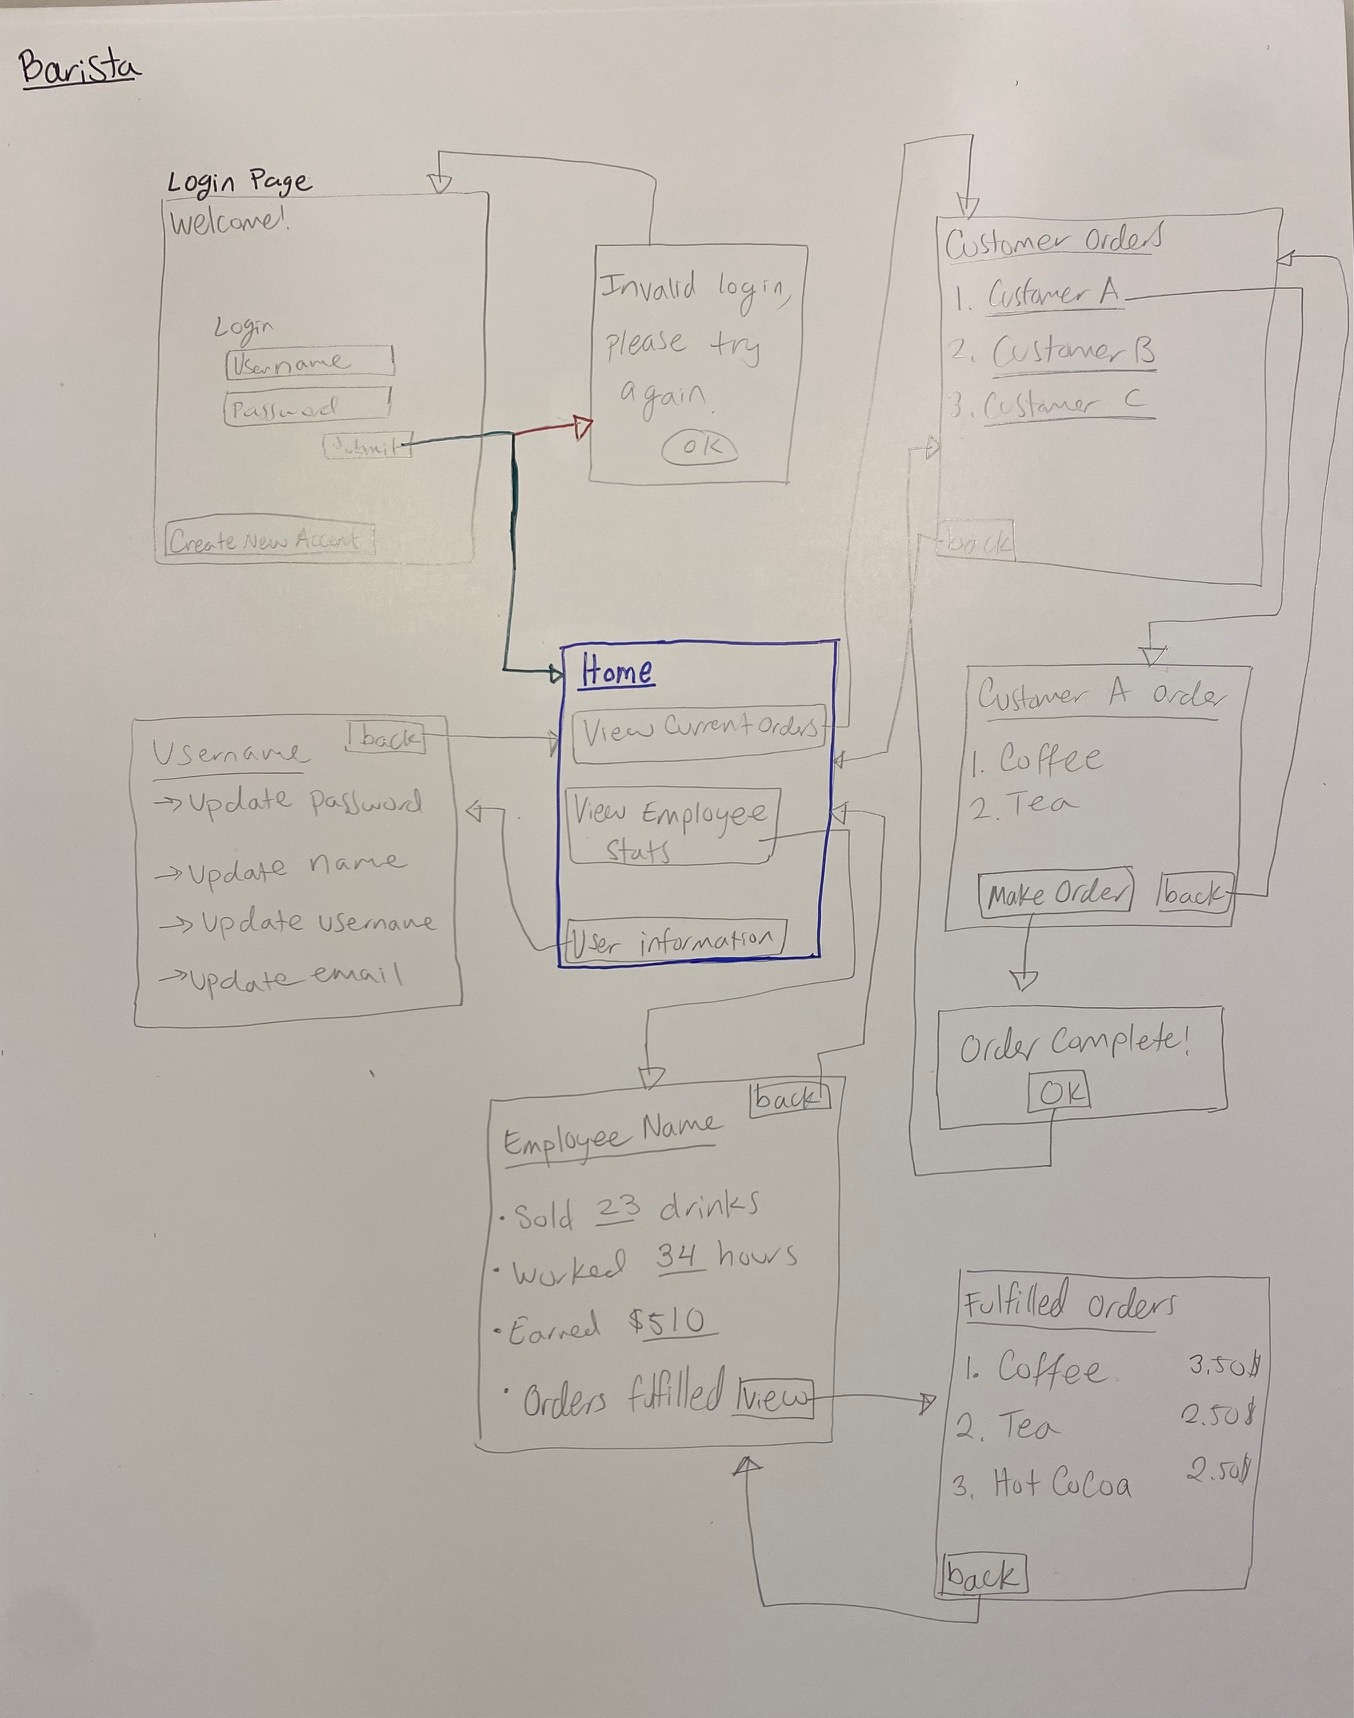 Barista
Login Page
Welcome!
Login
Username
Password
Submit
Create New Account
Invalid login,
please try
again.
OK
Customer Orders
1. Customer A
2. Customer B
3. Customer C
back
Home
View Current Orders
View Employee
Stats
User information
Username
back
→ Update password
→ Update name
→ Update username
→ Update email
Customer A order
1. Coffee
2. Tea
Make Order
back
Order Complete!
OK
back
Employee Name
• Sold 23 drinks
• Worked 34 hours
• Earned $510
• Orders fulfilled view
Fulfilled orders
1. Coffee 3.50$
2. Tea 2.50$
3. Hot CoCoa 2.50$
back